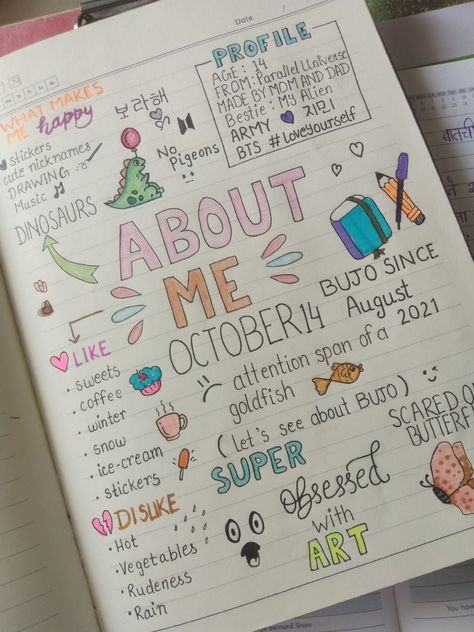 Date
WHAT MAKES
ME happy
stickers
cute nicknames
DRAWING
Music
DINOSAURS
보라해
No
Pigeons
PROFILE
AGE : 14
FROM: Parallel Universe
MADE BY MOM AND DAD
Bestie : My Alien
ARMY 💜 지민
BTS #loveyourself
ABOUT
ME
OCTOBER 14
BUJO SINCE
August
2021
LIKE
• sweets
• coffee
• winter
• snow
• ice-cream
• stickers
attention span of a
goldfish
(let's see about BUJO)
SUPER
Obsessed
with
ART
SCARED OF
BUTTERF
DISLIKE
• Hot
• Vegetables
• Rudeness
• Rain
Bernard Shaw
You have